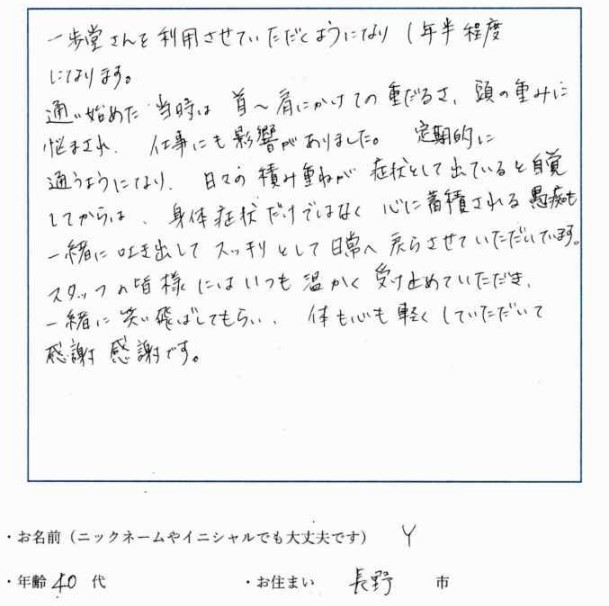 一歩堂さんを利用させていただくようになり1年半程度
になります。
通い始めた当時は首〜肩にかけての重だるさ、頭の重みに
悩まされ、仕事にも影響がありました。定期的に
通うようになり、日々の積み重ねが症状として出ていると自覚
してからは、身体症状だけではなく心に蓄積される愚痴も
一緒に吐き出してスッキリとして日常へ戻らさせていただいています。
スタッフの皆様にはいつも温かく受け止めていただき、
一緒に笑い飛ばしてもらい、体も心も軽くしていただいて
感謝感謝です。
・お名前（ニックネームやイニシャルでも大丈夫です） Y
・年齢 40 代 ・お住まい 長野 市